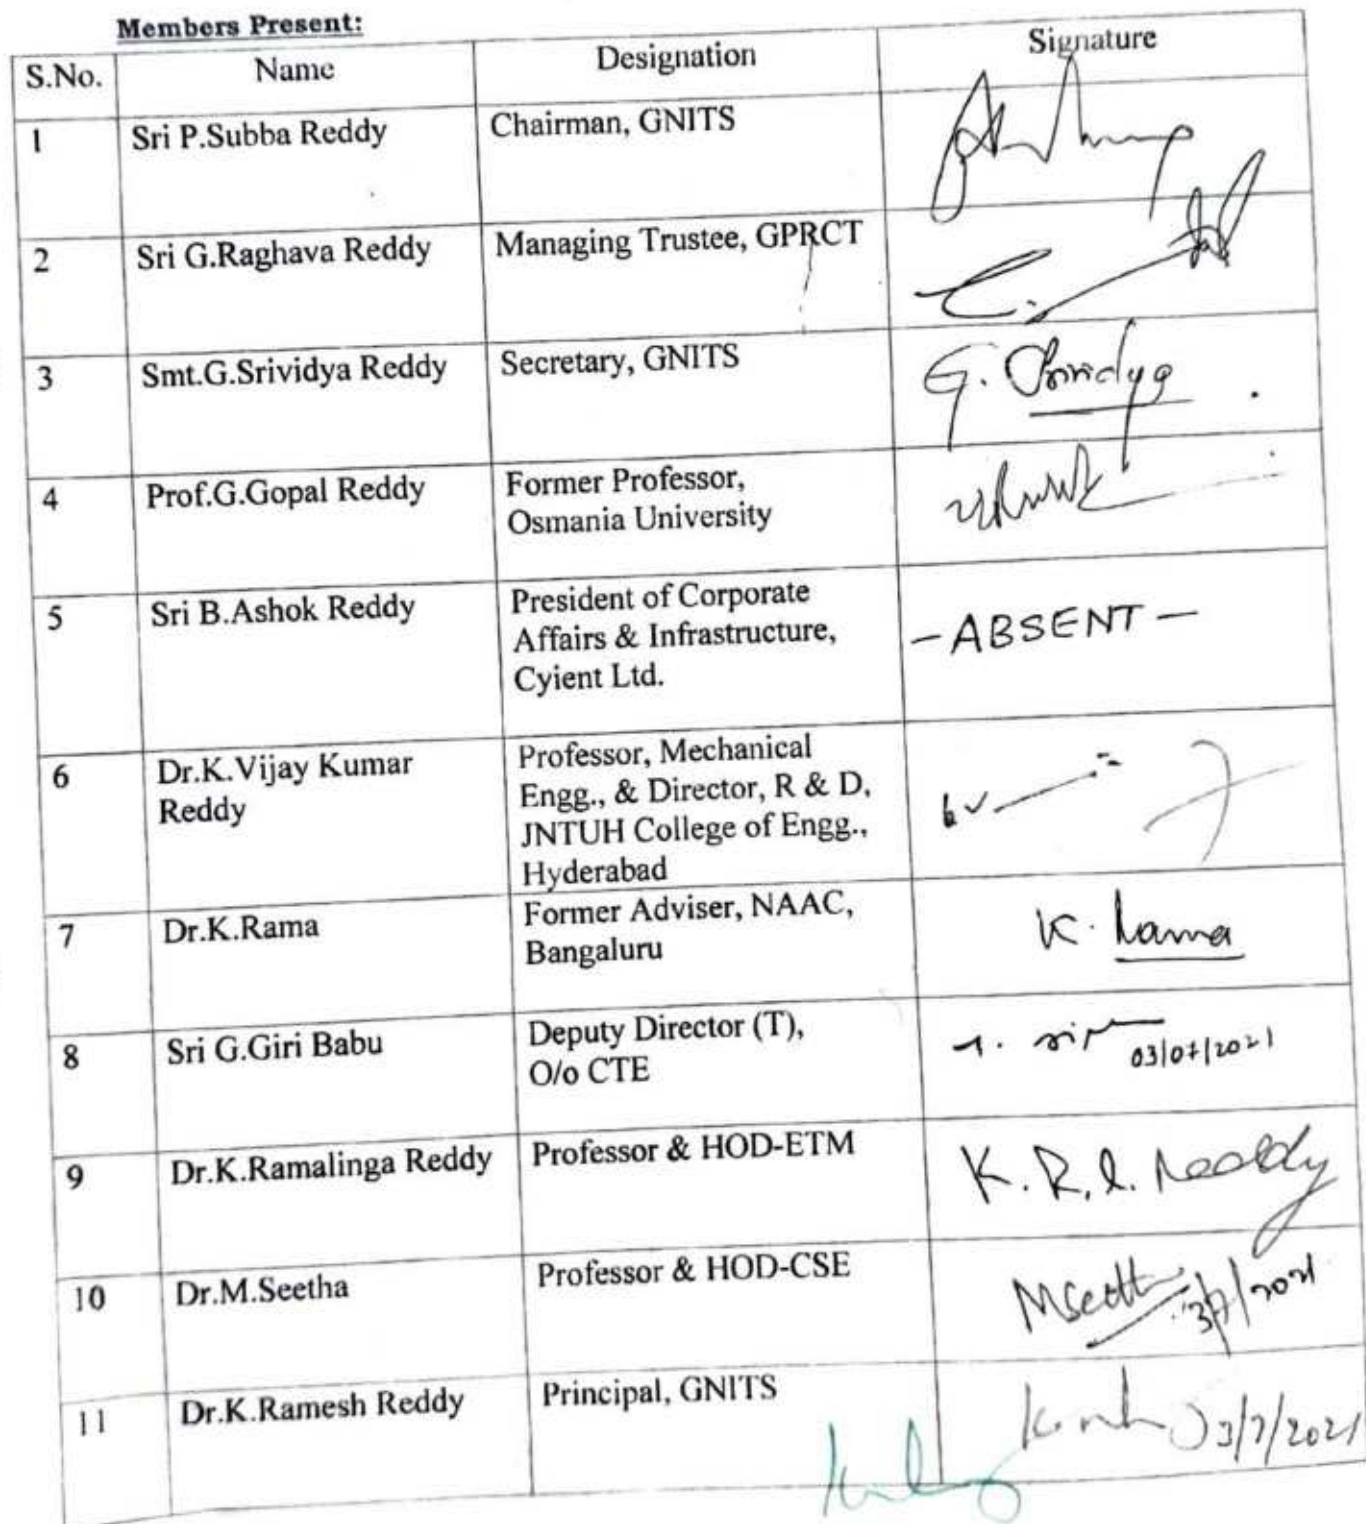 Members Present:
S.No. Name Designation Signature
1 Sri P.Subba Reddy Chairman, GNITS
2 Sri G.Raghava Reddy Managing Trustee, GPRCT
3 Smt.G.Srividya Reddy Secretary, GNITS G. Srividya
4 Prof.G.Gopal Reddy Former Professor,
Osmania University
5 Sri B.Ashok Reddy President of Corporate
Affairs & Infrastructure,
Cyient Ltd.
-ABSENT-
6 Dr.K.Vijay Kumar
Reddy
Professor, Mechanical
Engg., & Director, R & D,
JNTUH College of Engg.,
Hyderabad
7 Dr.K.Rama Former Adviser, NAAC,
Bangaluru
K. Rama
8 Sri G.Giri Babu Deputy Director (T),
O/o CTE
03/07/2021
9 Dr.K.Ramalinga Reddy Professor & HOD-ETM K.R.L. Reddy
10 Dr.M.Seetha Professor & HOD-CSE MSeetha
3/7/2021
11 Dr.K.Ramesh Reddy Principal, GNITS 3/7/2021